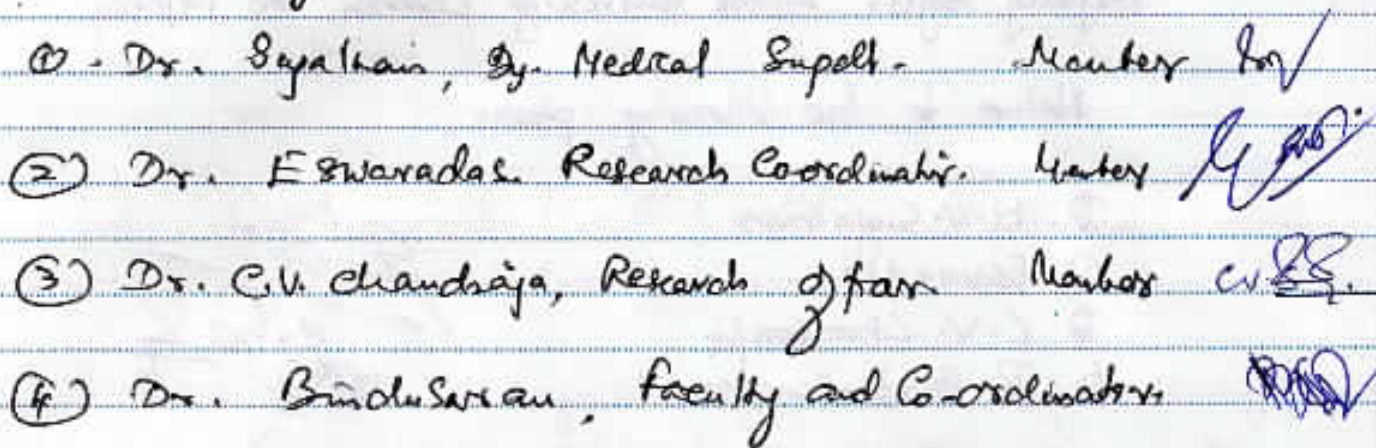 ① - Dr. Sujathan, Dy. Medical Supdt. - Member
② Dr. Eswaradas. Research Coordinator. Member
③ Dr. C.V. Chandraja, Research officer Member C.V
④ Dr. Bindu Saran, Faculty and Co-ordinator.